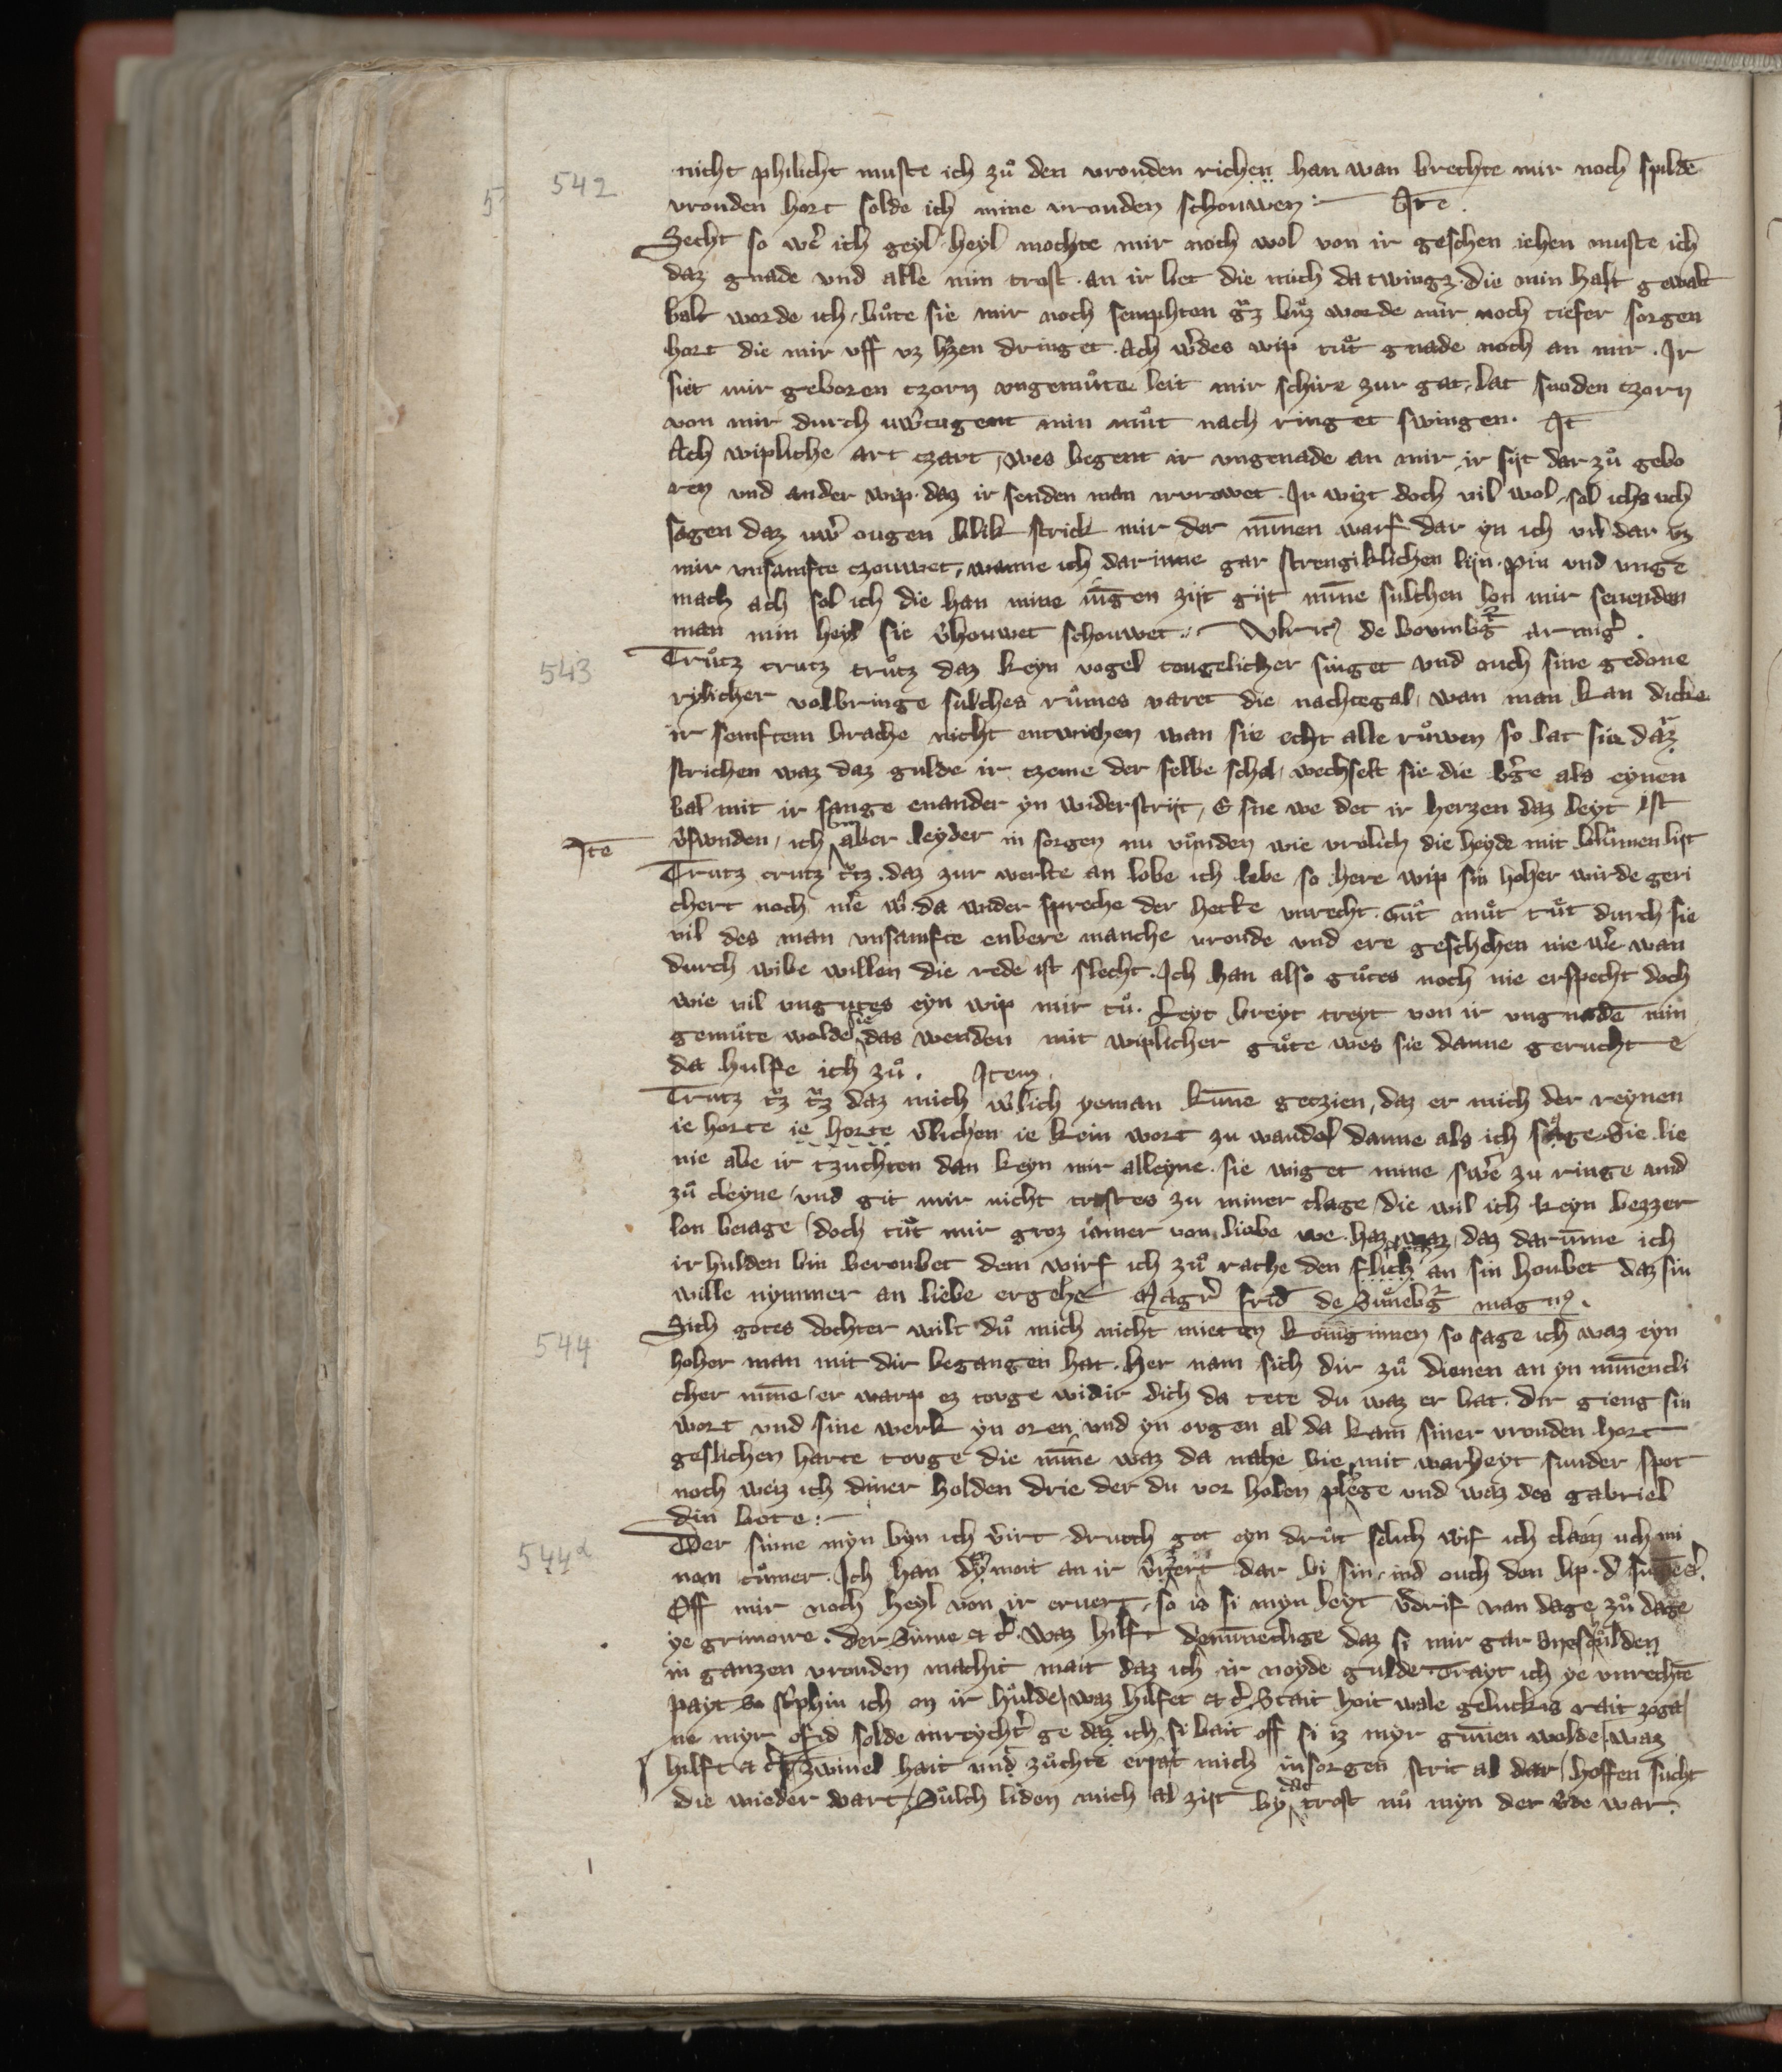 542
nicht philicht muste ich zuͦ den vronden richen han wan brechte mir noch spilde
vronden hort solde ich mine vronden schouwen Jte
Secht so we͛ ich geyl heyl mochte mir noch wol von ir geschen iehen muste ich
daz gnade vnd alle min trost an ir liet die mich da twingz die min halt gewalt
balt worde ich buͦte sie mir noch semphten gͦz buͦz worde mir noch tiefer sorgen
hort die mir vff vz hzen dringet Ach w͛des wip tuͦt gnade noch an mir Jr
siet mir geboren czorn vngemuͦte leit mir schire zur gat lat snoden czorn
von mir durch uw͛ tugent min muͦt nach ringet swingen Jt
Ach wipliche art czart wes begent ir vngenade an mir ir siit dar zuͦ gebo
ren vnd ander wip daz ir senden man irvrowet Jr wizt doch vil wol sol ichs uch
sagen daz uw͛ ougen blik strick mir der mīnen warf dar yn ich vil dar vz
mir vnsamfte czouwet wanne ich darinne gar strengiklichen lijn pin vnd vnge
mach ach sol ich die han mine iūgen ziit giit mīne sulchen lon mir senenden
man min heyl sie v͛houwet schouwet Vlric de boumbg armig͛
543
Truͦtz trutz truͦtz daz keyn vogel tougelicher singet vnd ouch sine gedone
rylicher volbringe sulches ruͦmes varet die nachtegal wan man kan dicke
ir semftem brache nicht entwichen wan sie echt alle ruͦwen so lat sie daz
strichen waz daz gulde ir czeme der selbe schal wechselt sie die b͛ge als eynen
bal mit ir sange enander yn widerstrijt E sne we det ir herzen daz leyt ist
v͛swnden ich bin aber leyder in sorgen nu vuͦnden wie vrolich die heyde mit bluͦmen list
Jte
Trutz trutz t͛tz daz zur werlte an lobe ich lebe so here wip sin hoher wirde geri
chert noch me͛ w͛ da wider spreche der hecke vnrecht Guͦt muͦt tuͦt durch sie
vil des man vnsamfte enbere manche vronde vnd ere geschehen nie we͛ wan
durch wibe willen die rede ist slecht Jch han also guͦtes noch nie erspecht doch
wie vil vngutes eyn wip mir tuͦ Leyt breyt treyt von ir vngnadē min
gemuͦte wolde sie das wenden mit wiplicher guͦte wes sie danne geruchte
da hulfe ich zuͦ Jtem
Trutz t͛z t͛tz daz mich w͛lich yeman kūne getzien daz er mich der reynen
ie horte ie horte v͛lichen ie kein wort zu wandel danne als ich sage Sie lie
nie abe ir tzuchten dan keyn mir alleyne sie wiget mine swe͛ zu ringe vnd
zuͦ cleyne vnd git mir nicht trostes zu miner clage die wil ich keyn bezzer
lon beiage doch tuͦt mir groz iamer von liebe we haz daz darūme ich
ir hulden bin beroubet dem wirf ich zuͦ rache den fluch an sin houbet daz sin
wille nymmer an liebe ergehe Magr͛ frid de Suͦnebg mag
544
Sich gotes dochter wilt duͦ mich nicht mieten konigīnen so sage ich waz eyn
hoher man mit dir begangen hat Her nam sich dir zuͦ dienen an yn mīnencli
cher mīne er warp ez tovge widir dich da tete du waz er bat dir gieng sin
wort vnd sine werk yn oren vnd yn ovgen al da kam siner vronden hort
geslichen harte tovge die mīne waz da nahe bie mit warheyt sunder spot
noch weiz ich diner holden drie der du vor holen plege vnd waz des gabriel
din bote
544a
Der sinne myn byn ich v͛irt druoch got eyn druͦt selich wif ich claez uch mi
nen cuͦmer Jch han dy moit an ir v͛z͛ert dar bi sin ind ouch den lip
Off mir noch heyl von ir eruert so is si myn leyt v͛drif van dage zuͦ dage
ye grimoire der sinne et c͛ Waz hilft daz si mir gar vnschulden
in ganzen vronden machit mait daz ich ir noyde gulde Trayt ich ye vnrechte
payt so ich on ir huͦlde waz hilfet et c͛ Stait hoit wale geluckis rait zoga
ne myr solde ge daz ich si bait off si iz myr gūnen wolde waz
hilft et c͛ Zwiuel hait vnd zuͦchte mich in sorgen strit al dar hoffen sucht
die wieder vart Suͦlch liden mich al zijt by dat trost nuͦ myn der v͛de war